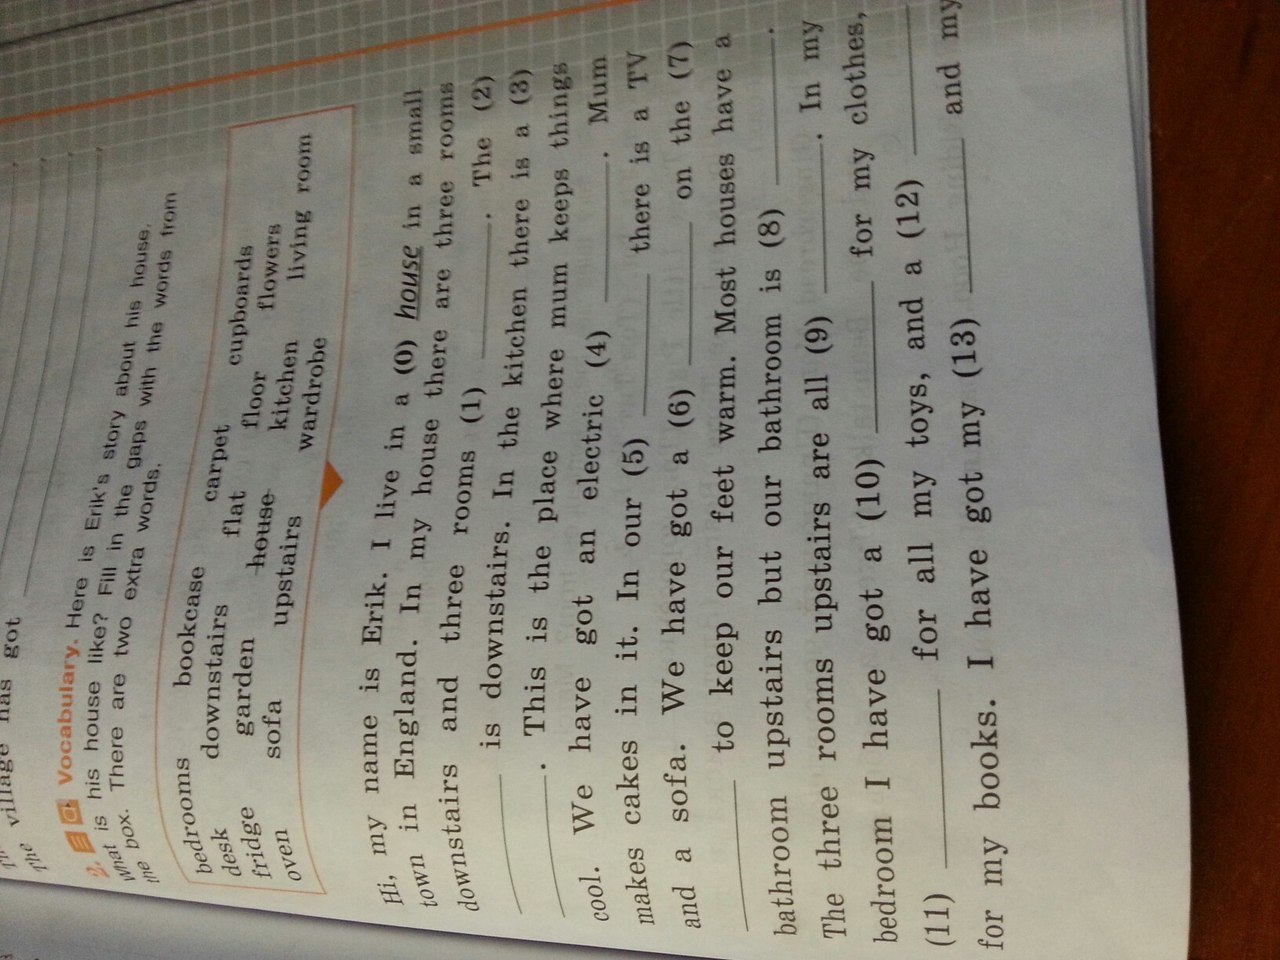 village has got
The
2. Vocabulary. Here is Erik's story about his house.
What is his house like? Fill in the gaps with the words from
the box. There are two extra words.
bedrooms bookcase carpet
desk downstairs flat cupboards
fridge garden house floor flowers
oven sofa upstairs kitchen living room
wardrobe
Hi, my name is Erik. I live in a (0) house in a small
town in England. In my house there are three rooms
downstairs and three rooms (1) ________. The (2)
________ is downstairs. In the kitchen there is a (3)
________. This is the place where mum keeps things
cool. We have got an electric (4) ________. Mum
makes cakes in it. In our (5) ________ there is a TV
and a sofa. We have got a (6) ________ on the (7)
________ to keep our feet warm. Most houses have a
bathroom upstairs but our bathroom is (8) ________.
The three rooms upstairs are all (9) ________. In my
bedroom I have got a (10) ________ for my clothes,
(11) ________ for all my toys, and a (12) ________
for my books. I have got my (13) ________ and my